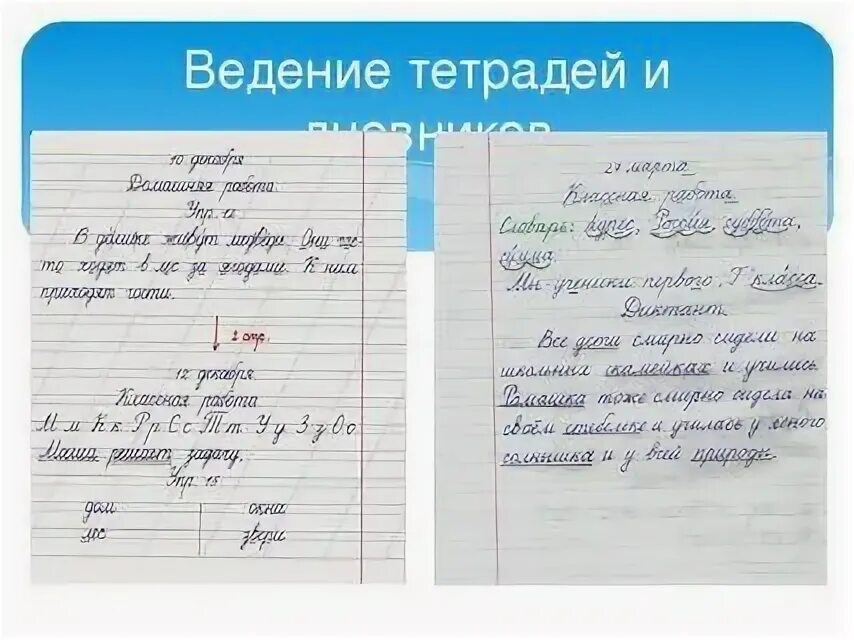 Ведение тетрадей и
дневников
10 декабря
Домашняя работа
Упр.
В домике живут медведи. Они час-
то ходят в лес за ягодами. К ним
приходят гости.
2 стр.
12 декабря
Классная работа
М м К к Р р С с Т т У у З з О о
Маша решает задачу.
Упр. 15
дом окна
лес звери
27 марта
Классная работа.
Словарь: адрес, Россия, суббота,
улица.
Мы ученики первого Г класса.
Диктант.
Все дети смирно сидели на
школьных скамейках и учились.
Ромашка тоже смирно сидела на
своём стебельке и училась у ясного
солнышка и у всей природы.